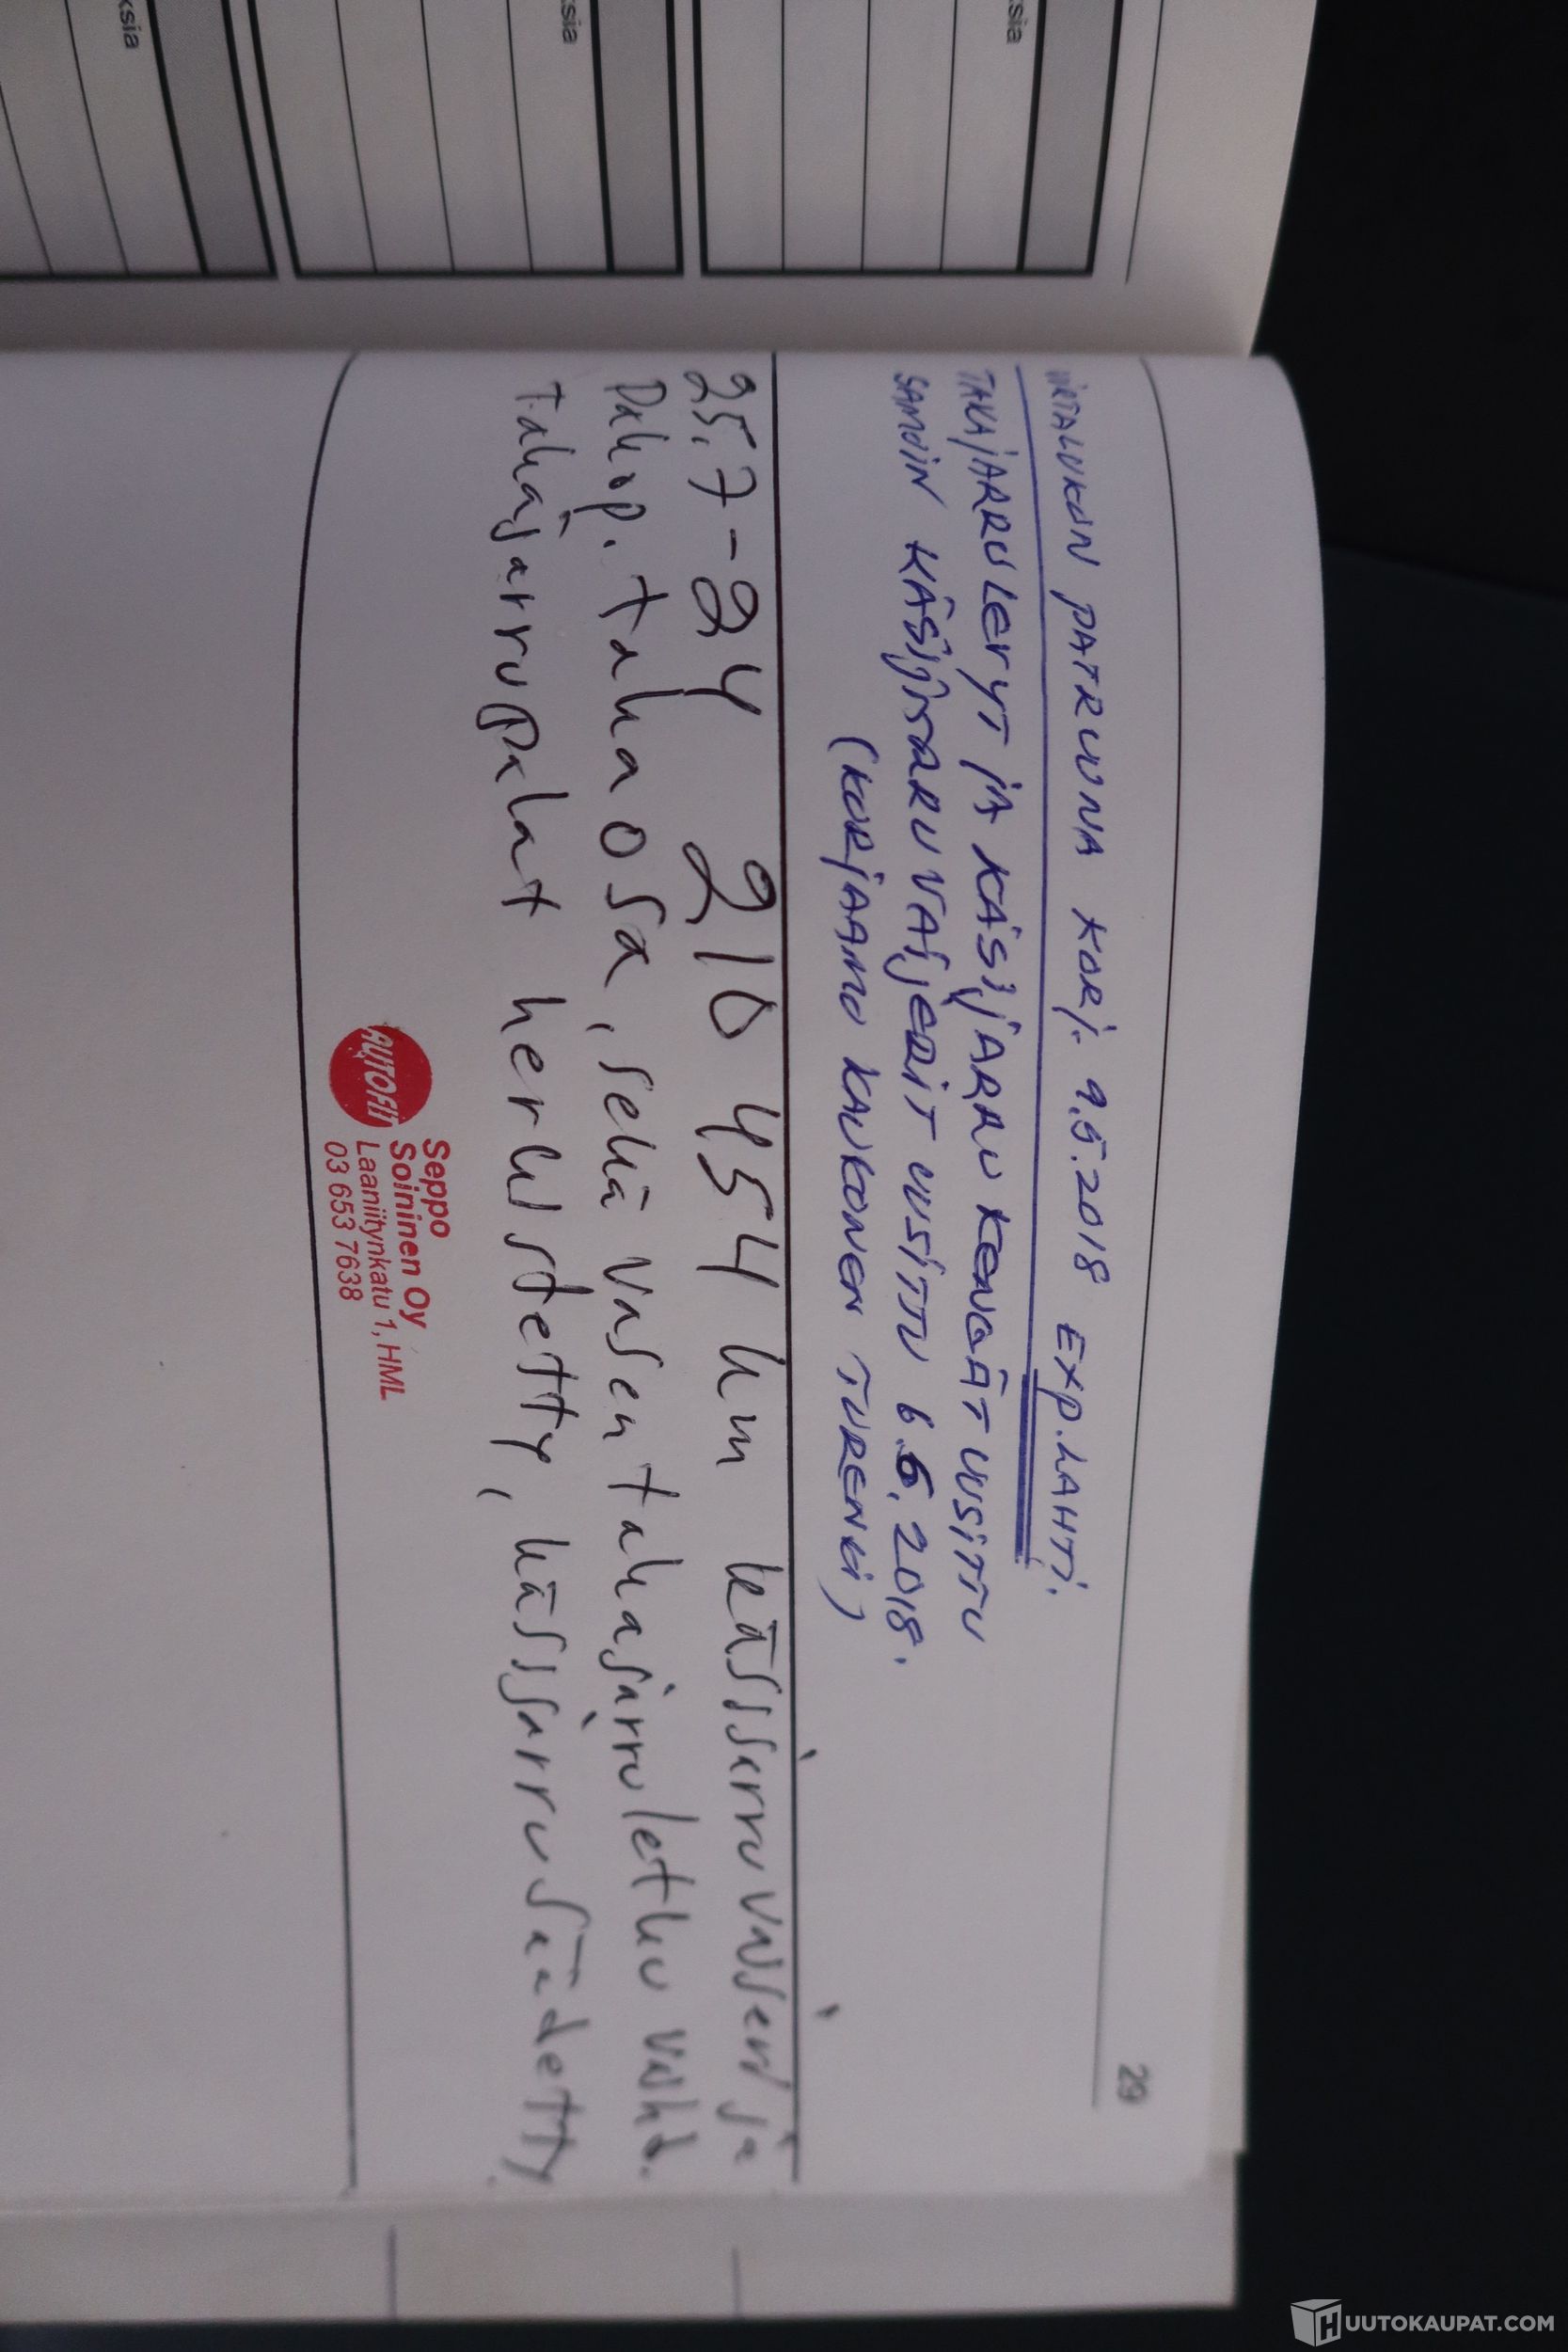 ksia
ksia
ksia
29
VIRTALUKON PATRUUNA KORJ. 9.5.2018 EXP.LAHTI.
TAKAJARRULEVYT JA KÄSIJARRU KENGÄT UUSITTU
SAMOIN KÄSIJJARRU VAIJERIT UUSITTU 6.6.2018.
(KORJAAMO KAUKONEN TURENKI)
25.7-24 210 454 km kässjarruvaijerit ja
Pakop. takaosa, sekä vasen takajarruletku vaihd.
Takajarrupalat herkistetty, kässjarru säädetty
AUTOFIT
Seppo
Soininen Oy
Laaniitynkatu 1, HML
03 653 7638
HUUTOKAUPAT.COM